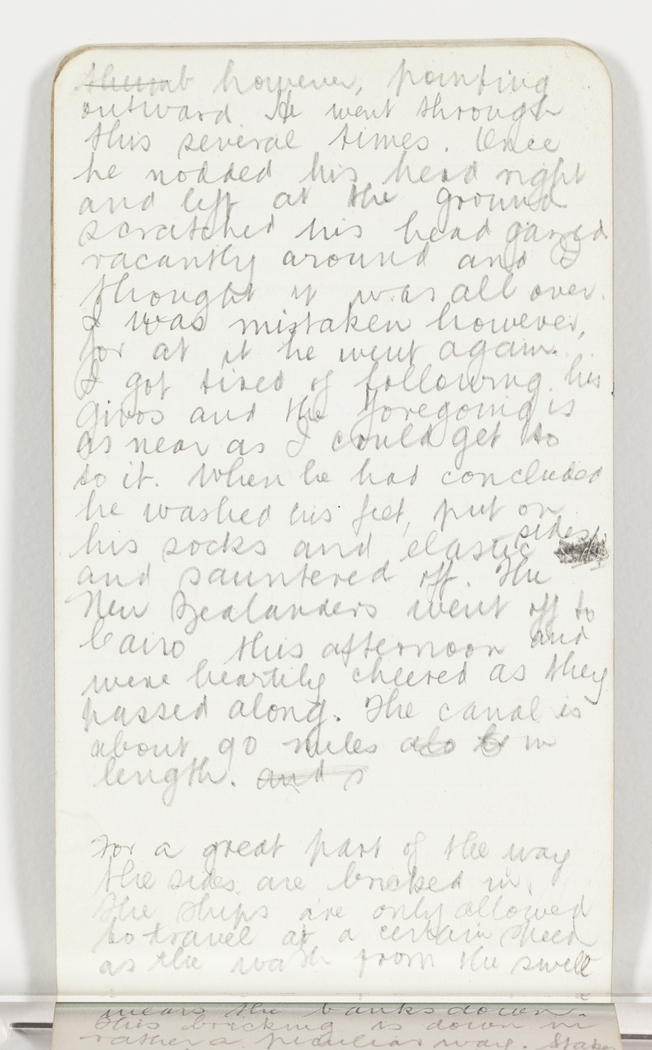 thumb however, pointing
outward. He went through
this several times. Once
he nodded his head right
and left at the ground
scratched his head gazed
vacantly around and I
thought it was all over.
I was mistaken however,
for at it he went again.
I got tired of following his
givos and the foregoing is
as near as I could get to
to it. When he had concluded
he washed his feet, put on
his socks and elastic sides
and sauntered off. The
New Zealanders went off to
Cairo this afternoon and
were heartily cheered as they
passed along. The canal is
about 90 miles in
length. and s
For a great part of the way
the sides are bricked in.
The ships are only allowed
to travel at a certain speed
as the wash from the swell
means the banks down.
This bricking is down in
rather a peculiar way.